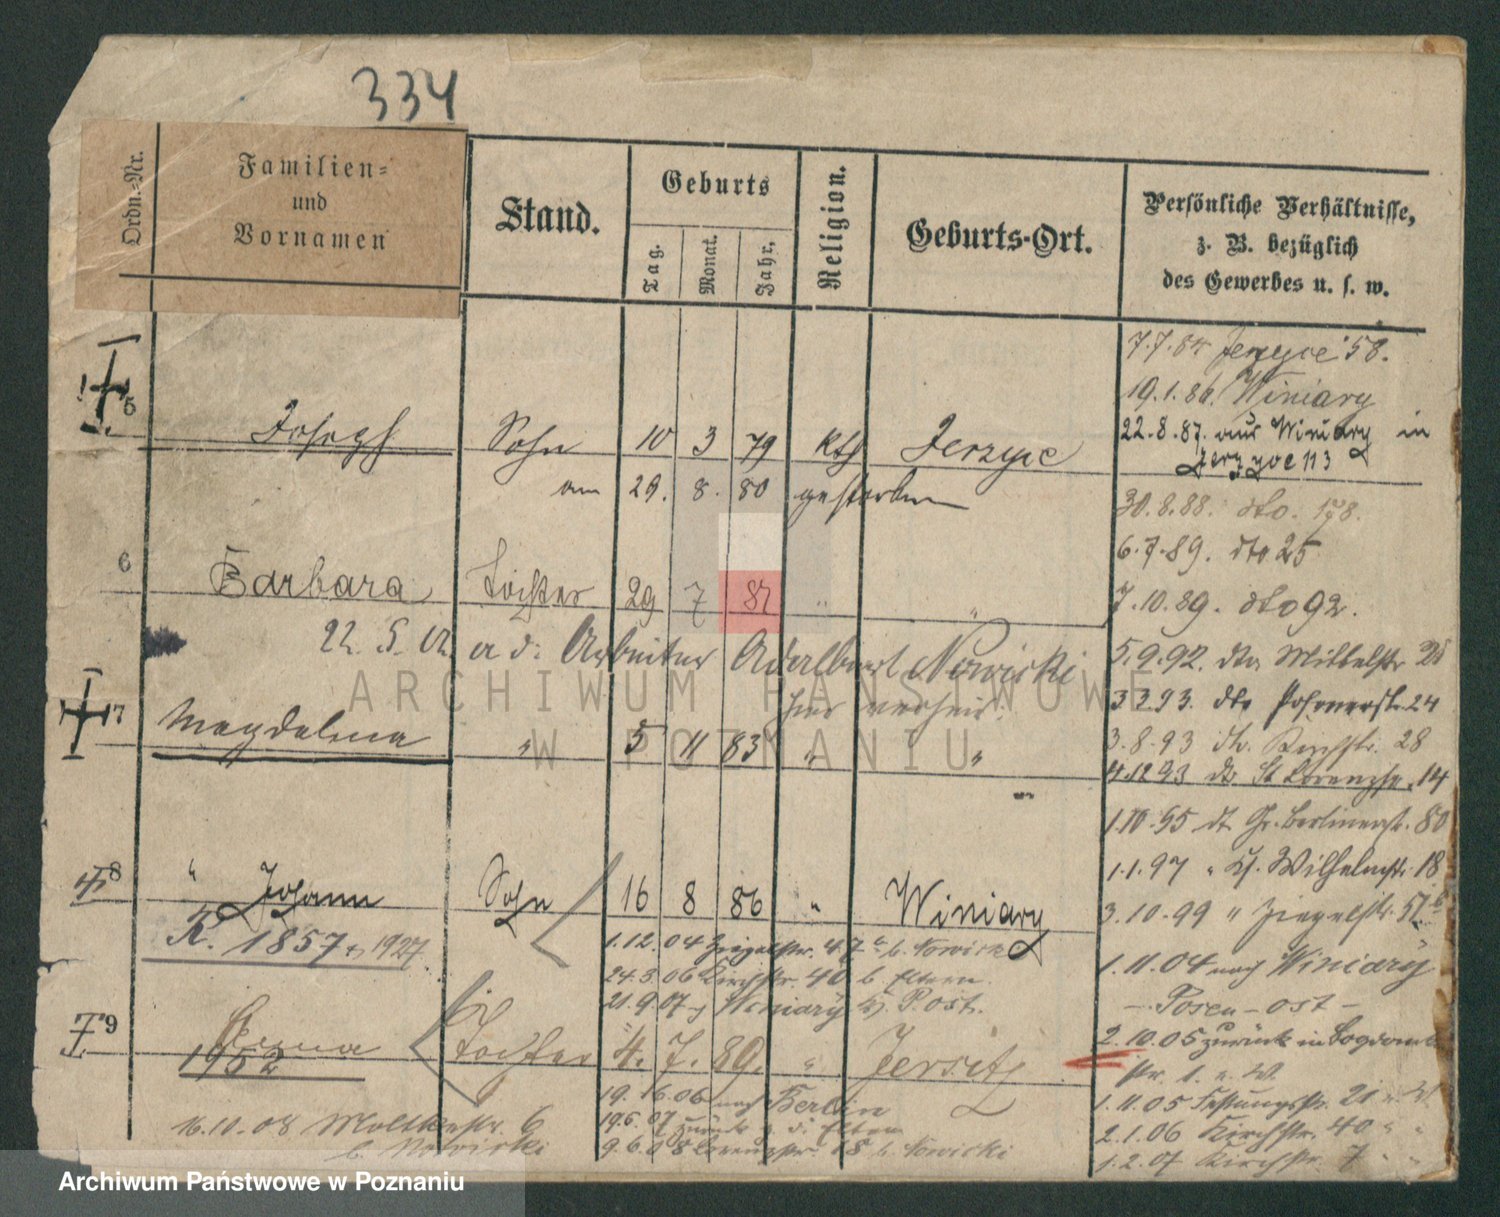 334
Ordn.-Nr.
Familien-
und
Vornamen
Stand.
Geburts
Tag.
Monat.
Jahr.
Religion.
Geburts-Ort.
Persönliche Verhältnisse,
z. B. bezüglich
des Gewerbes u. s. w.
7.7.84 Jerzyce 58.
19.1.86. Winiary
22.8.87. aus Winiary in
Jerzyce 113
5 Joseph Sohn 10 3 79 kth Jerzyce
am 29. 8. 80 gestorben
30.8.88. dto. 178.
6.7.89. dto 25
6 Barbara Tochter 29 7 81 " "
7.10.89. dto 92.
22. 5. 02. a d. Arbeiter Adalbert Nowicki
hier verheir.
5.9.92. dto Mittelstr 25
3.3.93. dto Posenerstr. 24
7 Magdalena " 5 11 83 " "
3.8.93 dto. Kirchstr. 28
4.12 93 dto St Lorenzstr. 14
1.10.95 dt Gr. Berlinerstr. 80
1.1.97 " Kl. Wilhelmstr. 18
8 " Johann Sohn 16 8 86 " Winiary
3.10.99 " Ziegelstr. 57b
K. 1857 1927
1.12.04 Ziegelstr. 47a b. Nowicki
24.3.06 Kirchstr. 40 b. Eltern.
21.9.07 Winiary Kr. P. Ost.
1.11.04 nach Winiary
- Posen-Ost -
2.10.05 zurück in
9 Tochter 4. 7. 89. " Jersitz
1952
19.16.06 nach Berlin
19.6.07 zurück z. d. Eltern
9.6.08 Lorenzstr. 18 b. Nowicki
1.11.05 Festungsstr. 21
2.1.06 Kirchstr. 40 " "
1.2.07 Kirchstr. 7 " "
16.10.08 Moltkestr. 6
b. Nowicki
ARCHIWUM PAŃSTWOWE
W POZNANIU
Archiwum Państwowe w Poznaniu